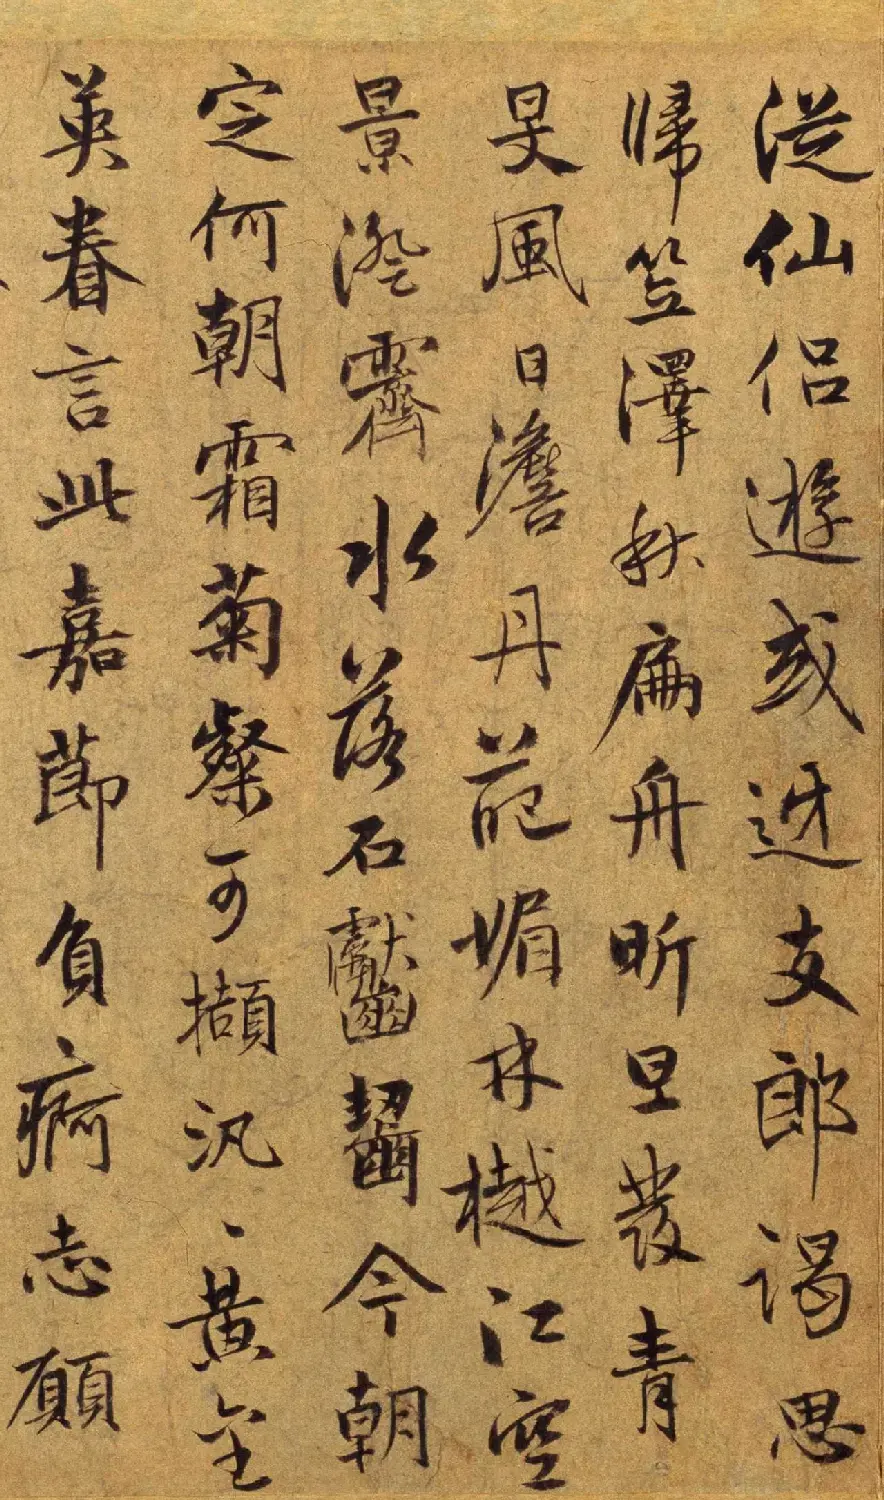 從仙侶遊或迓支郎謁思
歸笠澤秋扁舟昕旦發青
旻風日澹丹葩媚林樾江空
景澄霽水落石齧今朝
定何朝霜菊粲可擷汎〻黃金
英眷言此嘉節負痾志願